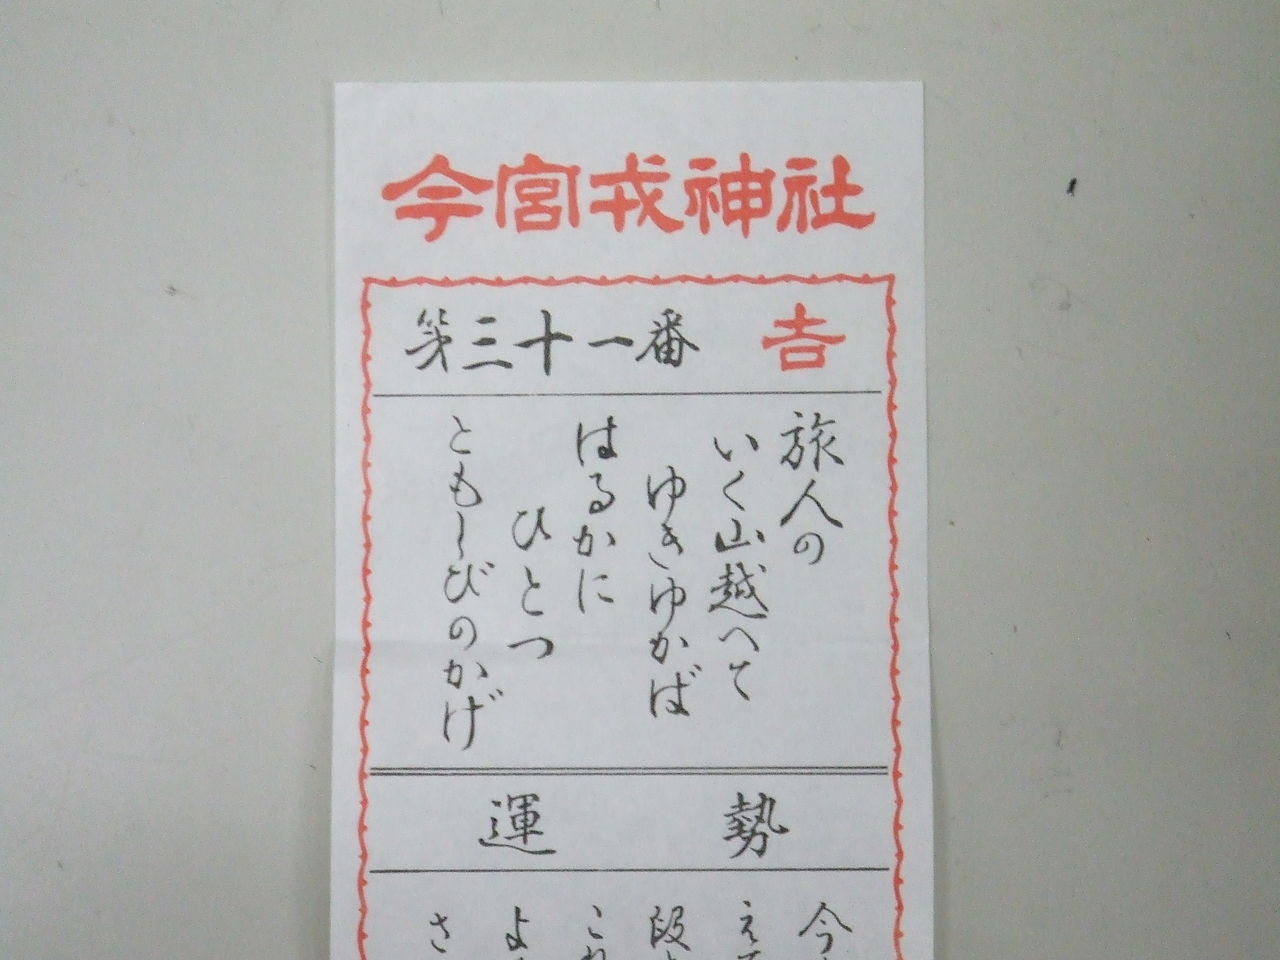 今宮戎神社
第三十一番 吉
旅人の
いく山越へて
ゆきゆかば
はるかに
ひとつ
ともしびのかげ
運勢
今
え
段
こ
よ
さ